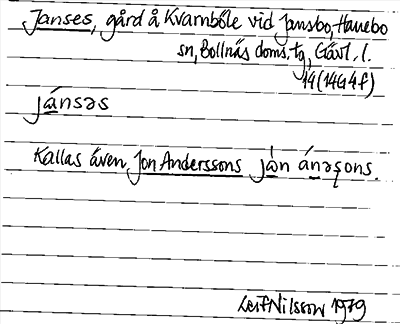 Janses, gård å Kvarnböle vid Jansbo, Hanebo
sn, Bollnäs doms. tg, Gävl. l.
14(14G4f)
jánsəs
Kallas även Jon Anderssons jàn ánəşons.
Leif Nilsson 1979